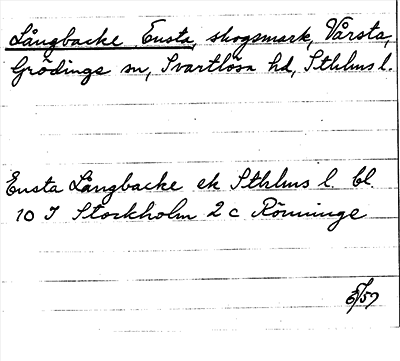 Långbacke Ensta, skogsmark, Vårsta,
Grödinge sn, Svartlösa hd, Sthlms l.
Ensta Långbacke ek Sthlms l. bl
10 I Stockholm 2 c Rönninge
5/57